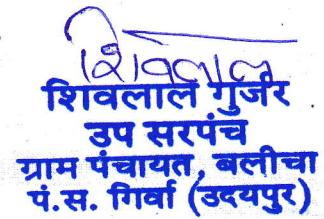 शिवलाल
शिवलाल गुर्जर
उप सरपंच
ग्राम पंचायत, बलीचा
पं.स. गिर्वा (उदयपुर)